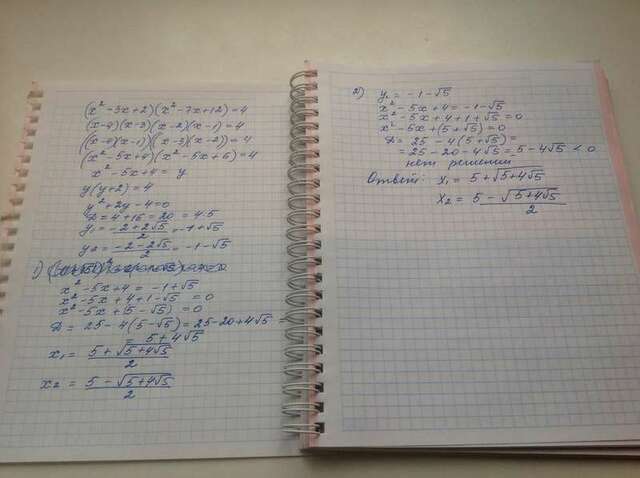 (x² - 3x + 2)(x² - 7x + 12) = 4
(x-4)(x-3)(x-2)(x-1) = 4
((x-4)(x-1))((x-3)(x-2)) = 4
(x² - 5x + 4)(x² - 5x + 6) = 4
x² - 5x + 4 = y
y(y+2) = 4
y² + 2y - 4 = 0
D = 4 + 16 = 20 = 4·5
y₁ = (-2 + 2√5)/2 = -1 + √5
y₂ = (-2 - 2√5)/2 = -1 - √5
1)
x² - 5x + 4 = -1 + √5
x² - 5x + 4 + 1 - √5 = 0
x² - 5x + (5 - √5) = 0
D = 25 - 4(5 - √5) = 25 - 20 + 4√5 =
= 5 + 4√5
x₁ = (5 + √(5+4√5))/2
x₂ = (5 - √(5+4√5))/2
2) y₁ = -1 - √5
x² - 5x + 4 = -1 - √5
x² - 5x + 4 + 1 + √5 = 0
x² - 5x + (5 + √5) = 0
D = 25 - 4(5 + √5) =
= 25 - 20 - 4√5 = 5 - 4√5 < 0
нет решений
Ответ: x₁ = 5 + √(5+4√5)
x₂ = (5 - √(5+4√5))/2